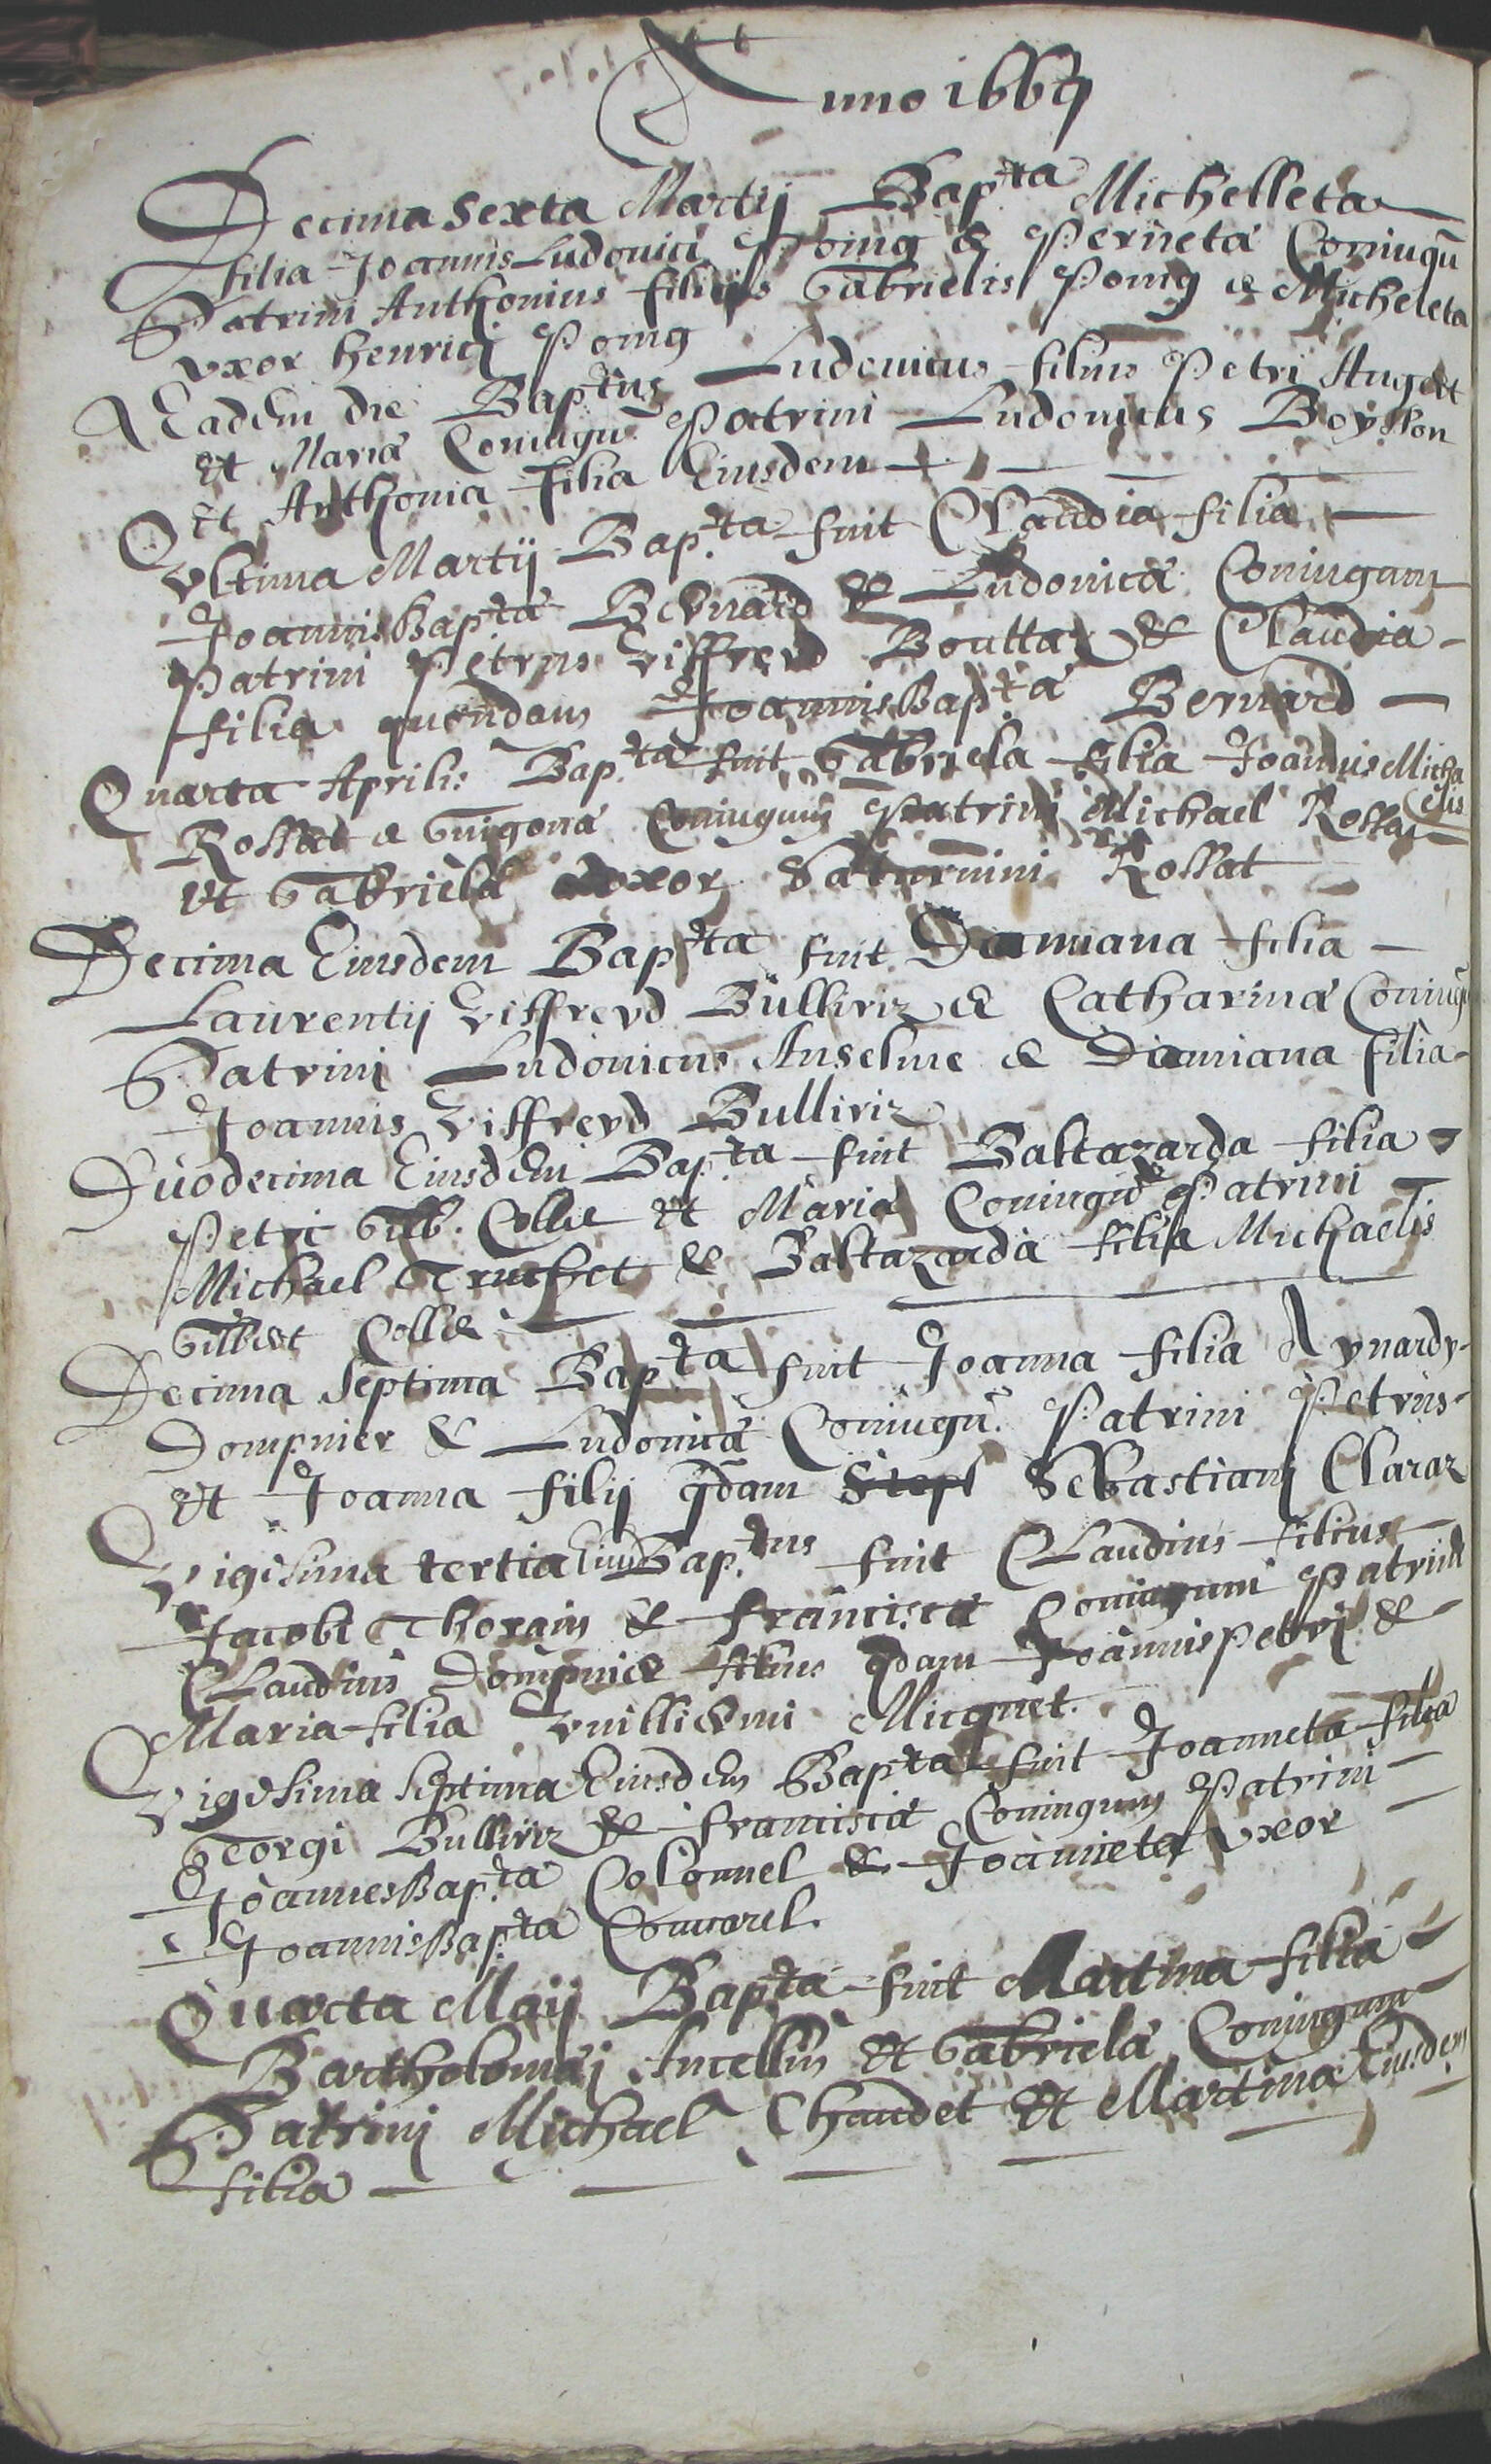 Anno 1669
Decima sexta Martij Bap.ta Michelleta
filia Joannis Ludovici Poing & Perneta Coniugū
Patrini Anthonius filius Gabrielis Poing & Micheleta
vxor henrici Poing
Eadem die Baptus Ludovicus filius Petri Augert
et Maria Coniugū Patrini Ludovicus Boysson
Et Anthonia filia Eiusdem
Vltima Martij Bap.ta fuit Claudia filia
Joannis Bapta Bernard & Ludovica Coniugum
Patrini Petrus Viffreyd Bouttaz & Claudia
filia quondam Joannis Bapta Bernard
Quarta Aprilis Bap.ta fuit Gabriela filia Joannis Micha
elis
Rossat & Guigona Coniugum Patrini Michael Rossat
et Gabriela vxor Saturnini Rossat
Decima Eiusdem Bapta fuit Damiana filia
Laurentij Viffreyd Bulliriz & Catharina Coniug
Patrini Ludovicus Anselme & Damiana filia
Joannis Viffreyd Bulliriz
Duodecima Eiusdem Bap.ta fuit Baltazarda filia
Petri Gilb. Collie et Maria Coniugū Patrini
Michael Truchet & Baltazarda filia Michaelis
Gilbert Collie
Decima septima Bap.ta fuit Joanna filia Aynardy
Dompnier & Ludovica Coniugū. Patrini Petrus
et Joanna filij qdam Steph Sebastiani Claraz
Vigesima tertia Eiusd Bap.tus fuit Claudius filius
Jacobi Thorain & Francisca Coniugum Patrini
Claudius Dompnier filius qdam Joannis Petri &
Maria filia Vuillermi Micquet.
Vigesima septima Eiusdem Bapta fuit Joanneta filia
Georgi Bulliriz & Francisca Coniugum Patrini
Joannes Bap.ta Colonnel & Joanneta vxor
Joannis Bap.ta
Quarta Maij Bapta fuit Martina filia
Bartholomai Ancellin et Gabriela Coniugum
Patrini Michael Chaudet et Martina Eiusdem
filia